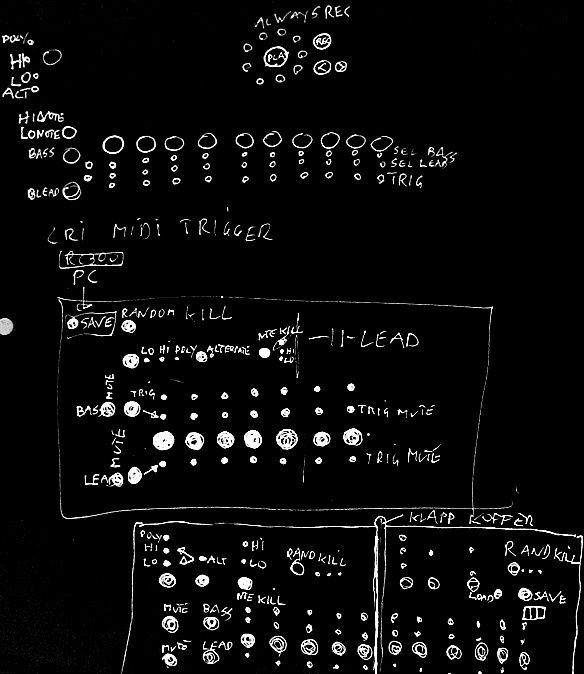 ALWAYS REC
POLY
HI
LO
ALT
PLA
REC
< >
HI NOTE
LO NOTE
BASS
LEAD
SEL BASS
SEL LEAD
TRIG
CRI MIDI TRIGGER
RC300
PC
SAVE
RANDOM KILL
LO HI POLY ALTERNATE
ME KILL
HI
LO
-11-LEAD
MUTE
BASS
TRIG
TRIG MUTE
MUTE
LEAD
TRIG MUTE
KLAPP KOFFER
POLY
HI
LO
ALT
HI
LO
RANDKILL
RANDKILL
LOAD
SAVE
ME KILL
MUTE BASS
MUTE LEAD